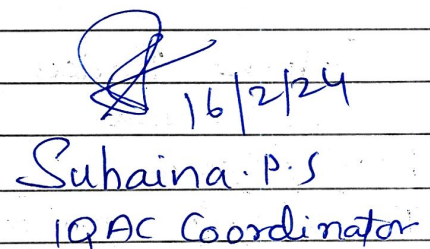 16/2/24
Suhaina.P.S
IQAC Coordinator